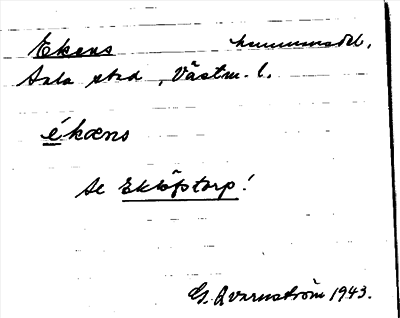 Ekens hemmansdel.
Sala stad, Västm. l.
ékæns
Se Eklöfstorp!
G. Qvarnström 1943.